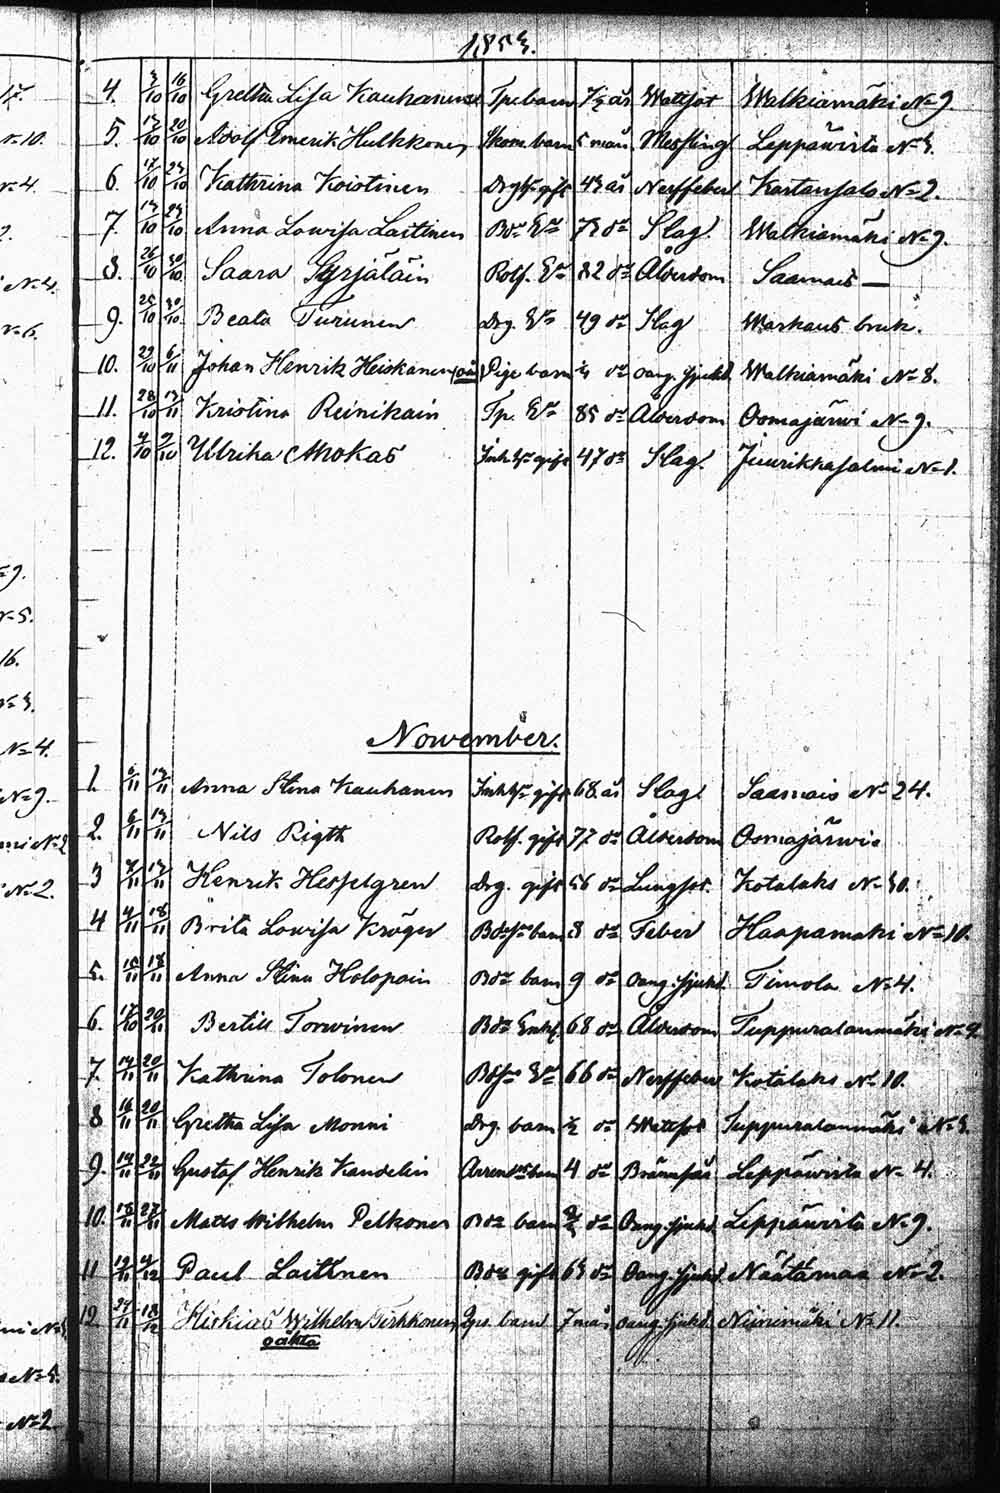 1853.
4. 3/10 16/10 Gretha Lisa Kauhanen Tpr barn 7½ år Wattsot Walkiamäki N=9.
5. 13/10 20/10 Adolf Emerik Hulkkonen Skom. barn 5 mån. Messling Leppäwirta N=3.
6. 17/10 23/10 Kathrina Koistinen gift 43 år Nerffeber Kartansalo N=2.
7. 13/10 23/10 Anna Lowisa Laitinen Bde Ea 73 de Slag. Walkiamäki N=9.
8. 26/10 30/10 Saara Syrjäläin Rotf. Ea 82 de Ålderdom Saamais —
9. 25/10 30/10 Beata Turunen Drg. Ea 49 de Slag Warkaus bruk.
10. 29/10 6/11 Johan Henrik Heiskanen (oä) Pige barn de oang. sjukd. Walkiamäki N=8.
11. 28/10 13/11 Kristina Reinikain Tp. Ea 85 de Ålderdom Oomajärwi N=9.
12. 4/10 9/10 Ulrika Mokas Inh. gift 47 de Slag. Juurikkasalmi N=1.
November.
1. 6/11 13/11 Anna Stina Kauhanen Inh gift 68 år Slag Saamais N=24.
2. 6/11 13/11 Nils Rigth Rotf. gift 77 de Ålderdom Oomajärwi.
3 8/11 13/11 Henrik Hesselgren Drg. gift 56 de Lungsot. Kotalaks N=30.
4 4/11 18/11 Brita Lowisa Kröger barn 8 de Feber Haapamaki N=10.
5. 15/11 18/11 Anna Stina Holopain Bde barn 9 de oang. sjukd. Timola N=4.
6. 17/10 20/11 Bertill Torwinen Bde Enkl. 68 de Ålderdom Tuppuralanmäki N=9.
7. 14/11 20/11 Kathrina Tolonen Ea 66 de Nerffeber Kotalaks N=10.
8 16/11 20/11 Gretha Lisa Monni Drg. barn ½ de Wattsot Tuppuralanmäki N=3.
9. 14/11 22/11 Gustaf Henrik Kandelin Arrend. barn 4 de Brännsår Leppäwirta N=4.
10. 18/11 27/11 Matts Wilhelm Pelkonen Bde barn de Oang. sjukd. Leppäwirta N=9.
11 19/11 4/12 Paul Laitinen Bde gift 63 de Oang. sjukd. Näätämaa N=2.
12. 27/11 18/12 Hiskias Wilhelm Tirkkonen barn 7 mån oang. sjukd. Niinimäki N=11.
oäkta